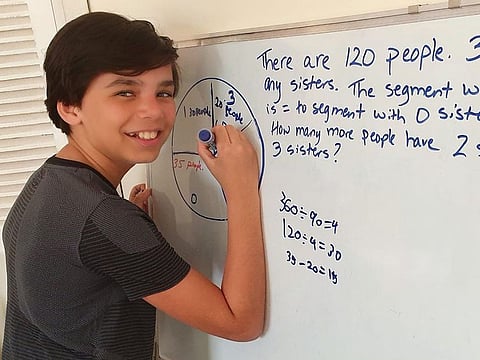 There are 120 people. 3
any sisters. The segment w
is = to segment with 0 siste
How many more people have 2 s
3 sisters?
3
people
35 people
0
360÷90=4
120÷4=30
35-20=15